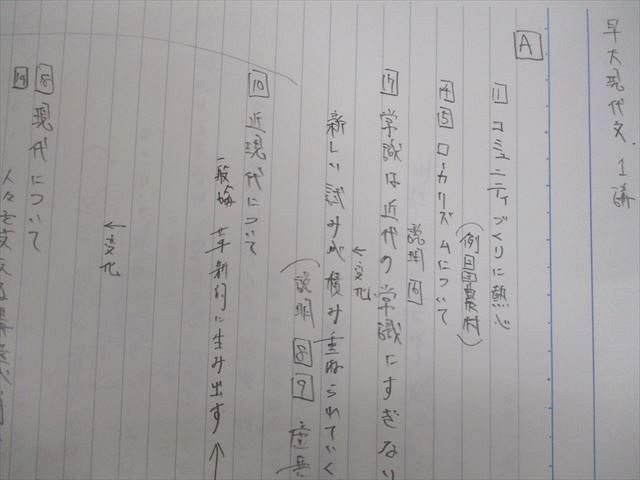 早大現代文. 1講
A
① コミュニティづくりに熱心
(例 農村)
④⑤ ローカリズムについて
説明 ⑥
⑦ 学識は近代の学識にすぎない
↓文化
新しい試みが積み重ねられていく
(説明 ⑧⑨
⑩ 近現代について
一般論 革新的に生み出す ←
↓文化
現代について
人々を支える